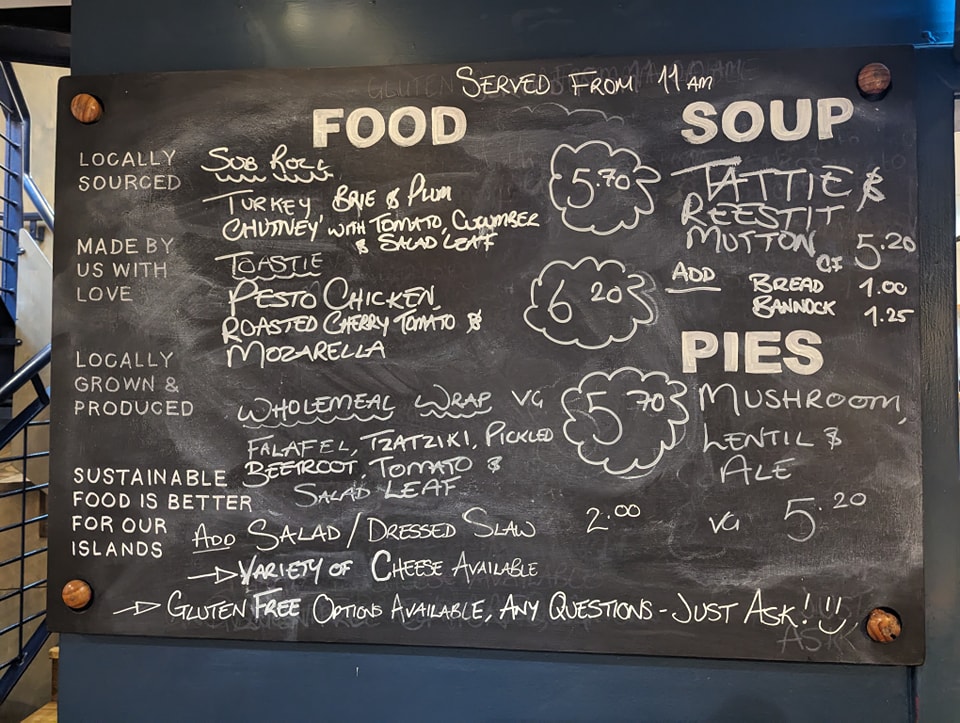 SERVED FROM 11 AM
FOOD
LOCALLY
SOURCED
MADE BY
US WITH
LOVE
LOCALLY
GROWN &
PRODUCED
SUSTAINABLE
FOOD IS BETTER
FOR OUR
ISLANDS
SUB ROLL
TURKEY BRIE & PLUM
CHUTNEY WITH TOMATO, CUCUMBER
& SALAD LEAF
5.70
TOASTIE
PESTO CHICKEN,
ROASTED CHERRY TOMATO &
MOZARELLA
6.20
WHOLEMEAL WRAP VG
FALAFEL, TZATZIKI, PICKLED
BEETROOT, TOMATO &
SALAD LEAF
5.70
ADD SALAD/DRESSED SLAW 2.00
→ VARIETY OF CHEESE AVAILABLE
→ GLUTEN FREE OPTIONS AVAILABLE, ANY QUESTIONS - JUST ASK!
SOUP
TATTIE &
REESTIT
MUTTON GF 5.20
ADD BREAD 1.00
BANNOCK 1.25
PIES
MUSHROOM,
LENTIL &
ALE
VG 5.20